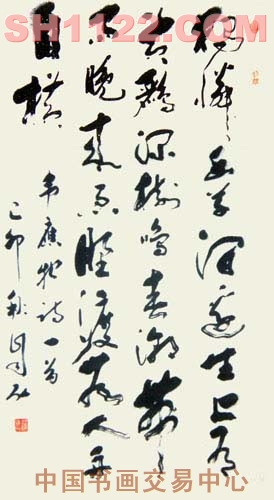 SH1122.COM
獨憐幽草澗邊生上有
黃鸝深樹鳴春潮帶
雨晚來急野渡無人舟
自橫
韋應物詩一首
己卯秋
中国书画交易中心